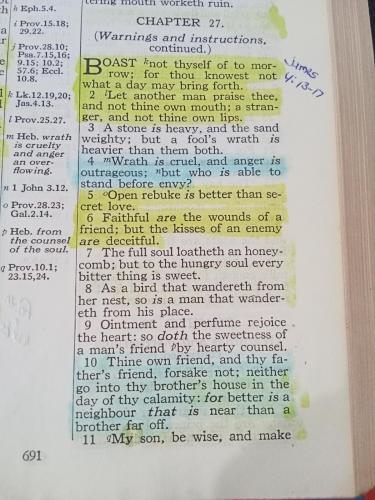 tering mouth worketh ruin.
CHAPTER 27.
(Warnings and instructions,
continued.)
BOAST knot thyself of to mor-
row; for thou knowest not
what a day may bring forth.
2 lLet another man praise thee,
and not thine own mouth; a stran-
ger, and not thine own lips.
3 A stone is heavy, and the sand
weighty; but a fool's wrath is
heavier than them both.
4 mWrath is cruel, and anger is
outrageous; nbut who is able to
stand before envy?
5 oOpen rebuke is better than se-
cret love.
6 Faithful are the wounds of a
friend; but the kisses of an enemy
are deceitful.
7 The full soul loatheth an honey-
comb; but to the hungry soul every
bitter thing is sweet.
8 As a bird that wandereth from
her nest, so is a man that wander-
eth from his place.
9 Ointment and perfume rejoice
the heart: so doth the sweetness of
a man's friend pby hearty counsel.
10 Thine own friend, and thy fa-
ther's friend, forsake not; neither
go into thy brother's house in the
day of thy calamity: for better is a
neighbour that is near than a
brother far off.
11 qMy son, be wise, and make
h Eph.5.4.
i Prov.15.18;
29.22.
j Prov.28.10;
Psa.7.15,16;
9.15; 10.2;
57.6; Eccl.
10.8.
k Lk.12.19,20;
Jas.4.13.
l Prov.25.27.
m Heb. wrath
is cruelty
and anger
an over-
flowing.
n 1 John 3.12.
o Prov.28.23;
Gal.2.14.
p Heb. from
the counsel
of the soul.
q Prov.10.1;
23.15,24.
James
4:13-17
691